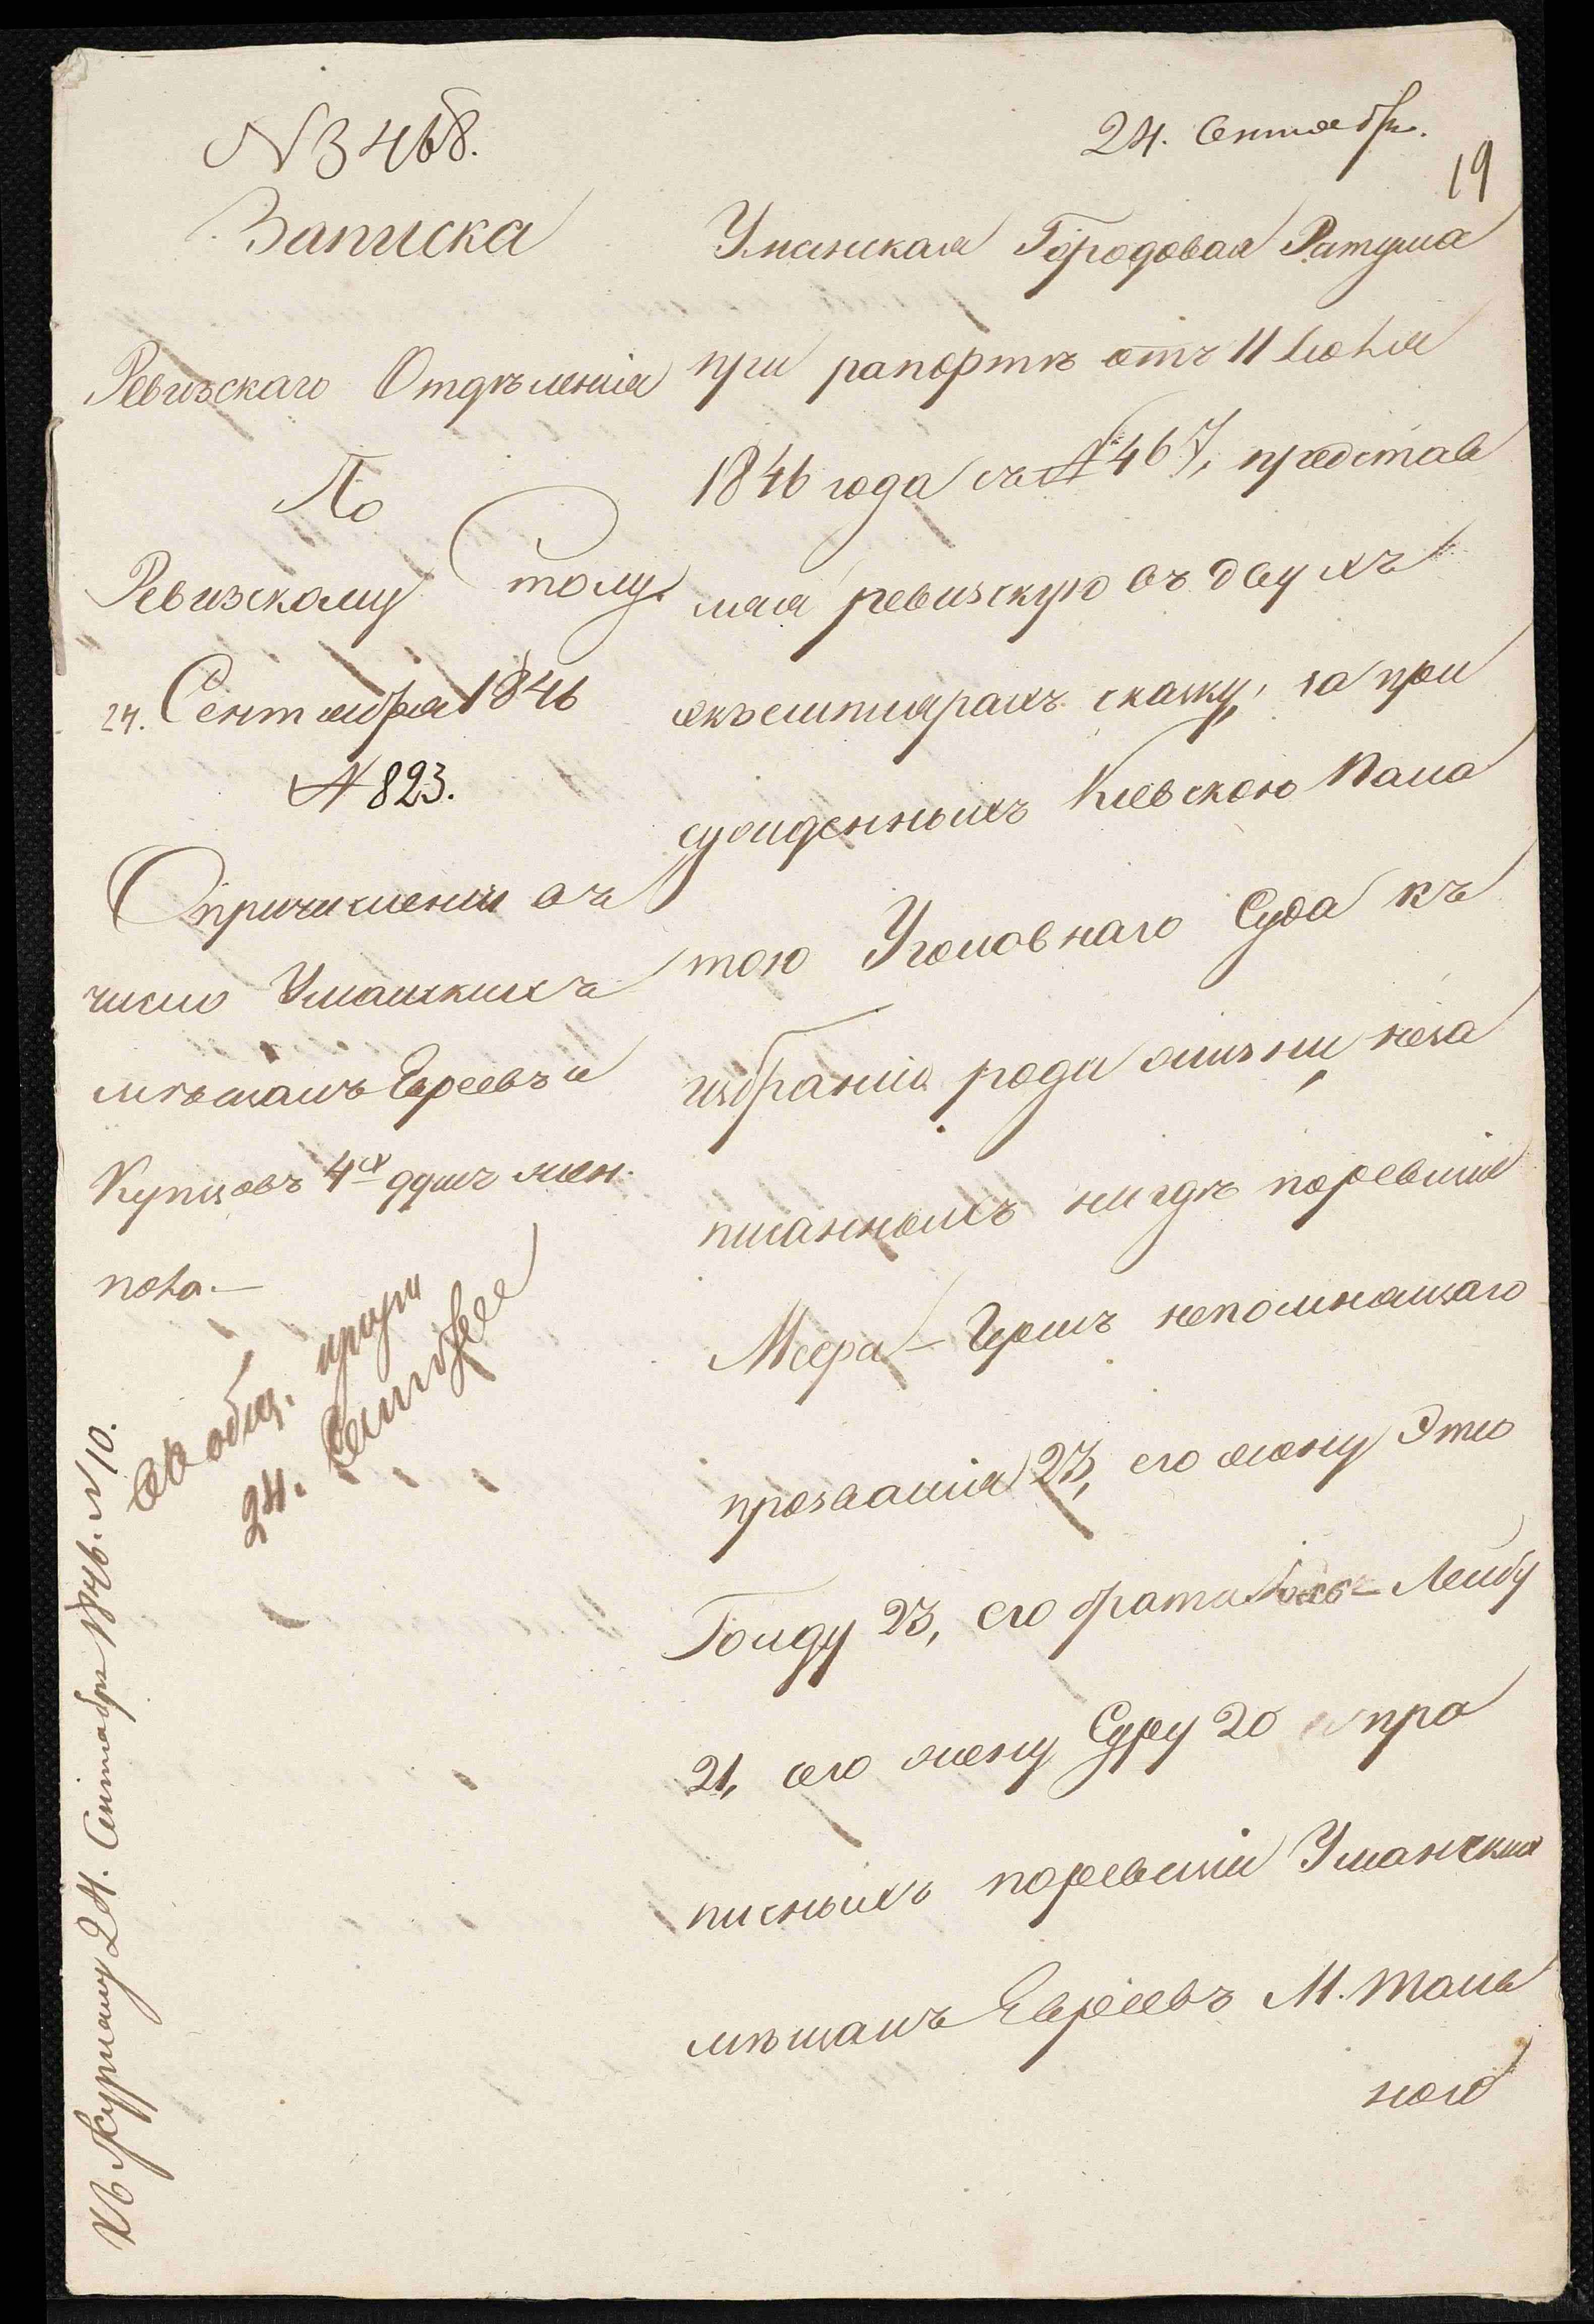 № 3468.
Записка
Ревизскаго Отдѣленія
По
Ревизскому Столу
24. Сентября 1846
№ 823.
О причисленіи въ
число Уманскихъ
мѣщанъ Евреевъ и
Купцовъ 4х душъ
пола.—
24.
Къ Журналу 24. Сентября 1846. № 10.
24. Сентября.
19
Уманская Городовая Ратуша
при рапортѣ отъ 11 Іюля
1846 года съ № 467, представ
ляя ревизскую въ двухъ
екземплярахъ сказку, за при
сужденныхъ Кіевскою Пала
тою Уголовнаго Суда къ
избранію рода жизни неза
писанныхъ нигдѣ поревизіи
Меера-Герша непомнящаго
прозванія 23, его жену Этю
Гольду 23, его брата Лейбу
21, его жену Суру 20 и про
писныхъ поревизіи Уманскихъ
мѣщанъ Евреевъ М. Таль
ного